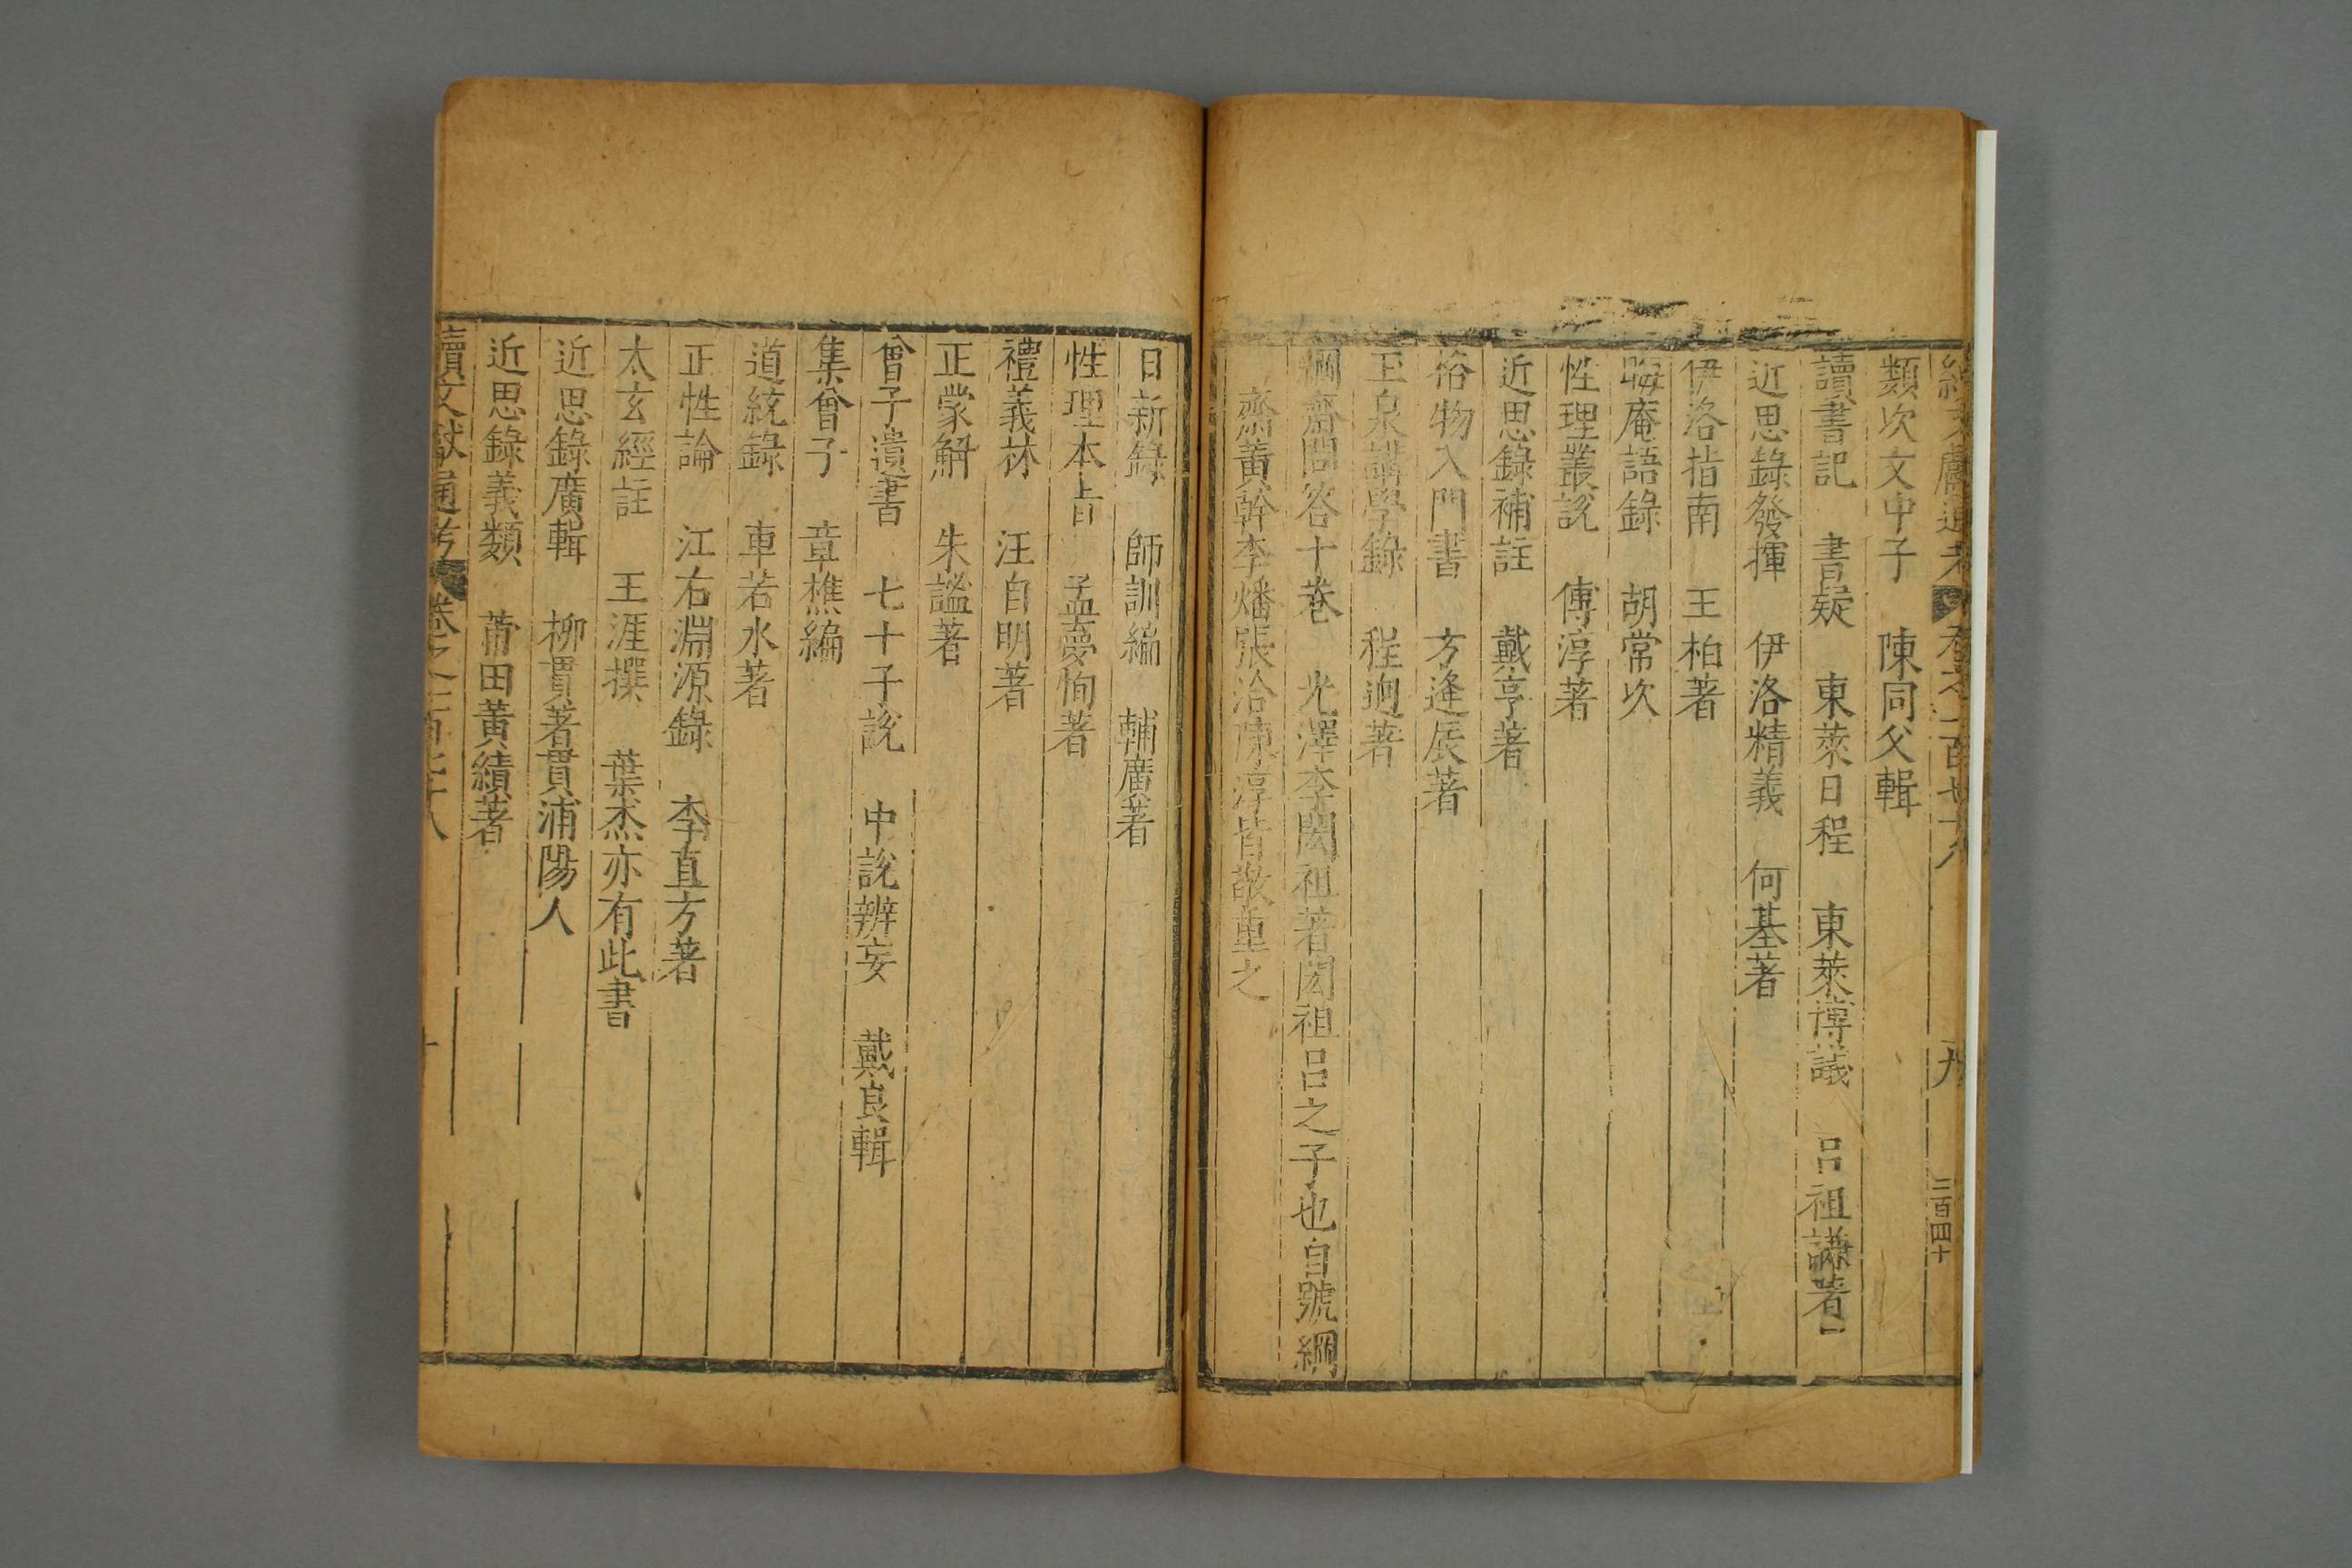 類次文中子　陳同父輯
讀書記　書疑　東萊日程　東萊博議　呂祖謙著
近思錄發揮　伊洛精義　何基著
伊洛指南　王柏著
晦庵語錄　胡常次
性理叢說　傅淳著
近思錄補註　戴亨著
格物入門書　方逢辰著
玉泉講學錄　程逈著
綱齋問答十卷　光澤李閎祖著閎祖呂之子也自號綱
齋黃幹李燔張洽陳淳皆敬重之
日新錄　師訓編　輔廣著
性理本旨　孟夢恂著
禮義林　汪自明著
正蒙解　朱謐著
曾子遺書　七十子說　中說辨妄　戴良輯
集曾子　章樵編
道統錄　車若水著
正性論　江右淵源錄　李直方著
太玄經註　王涯撰　葉杰亦有此書
近思錄廣輯　柳貫著貫浦陽人
近思錄義類　莆田黃績著
續文獻通考　卷之一百七十八
九
二百四十